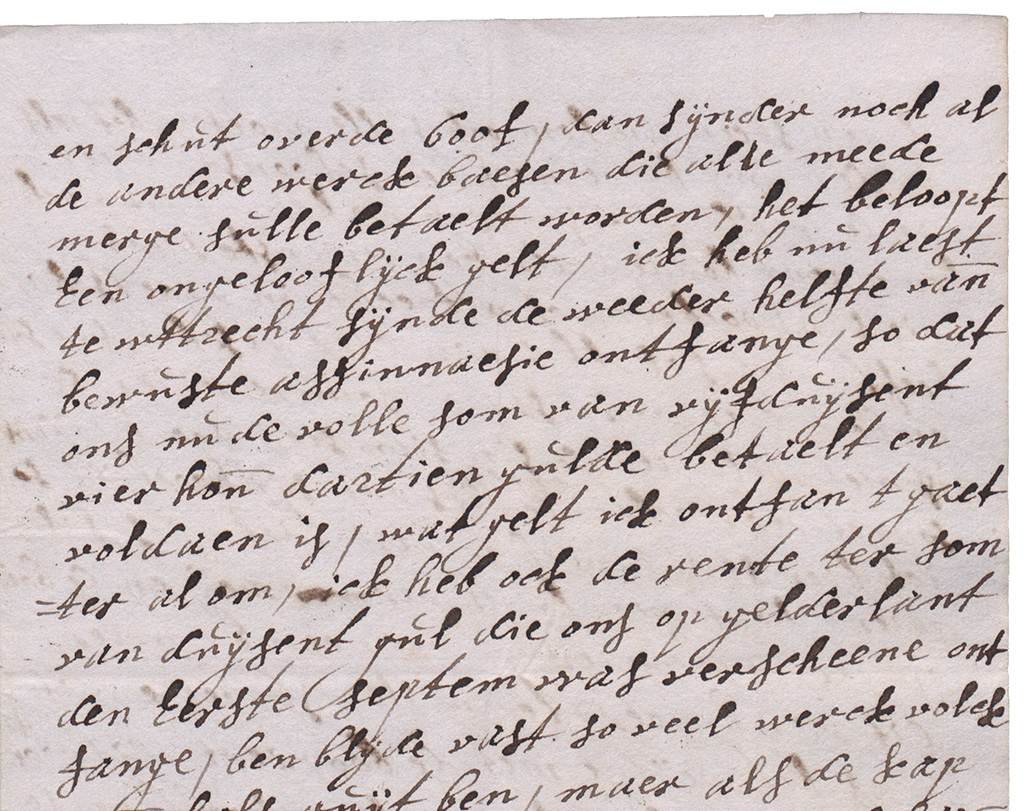 en schut overde boof, dan sÿnder noch al
de andere werck baesen die alle meede
merge sulle betaelt worden, het beloopt
Een ongeloof lÿck gelt, ick heb nu laest
te wttrecht sÿnde de weeder helfte van
bewuste assinnaesie ontfange, so dat
ons nu de volle som van vÿfduÿsent
vier hon dartien gulde betaelt en
voldaen is, wat gelt ick ontfan t gaet
=ter al om, ick heb ock de rente ter som
van duÿsent gul die ons op gelderlant
den Eerste septem was verscheene ont
fange, ben blyde vast so veel werck volck
quÿt ben, maer als de kap